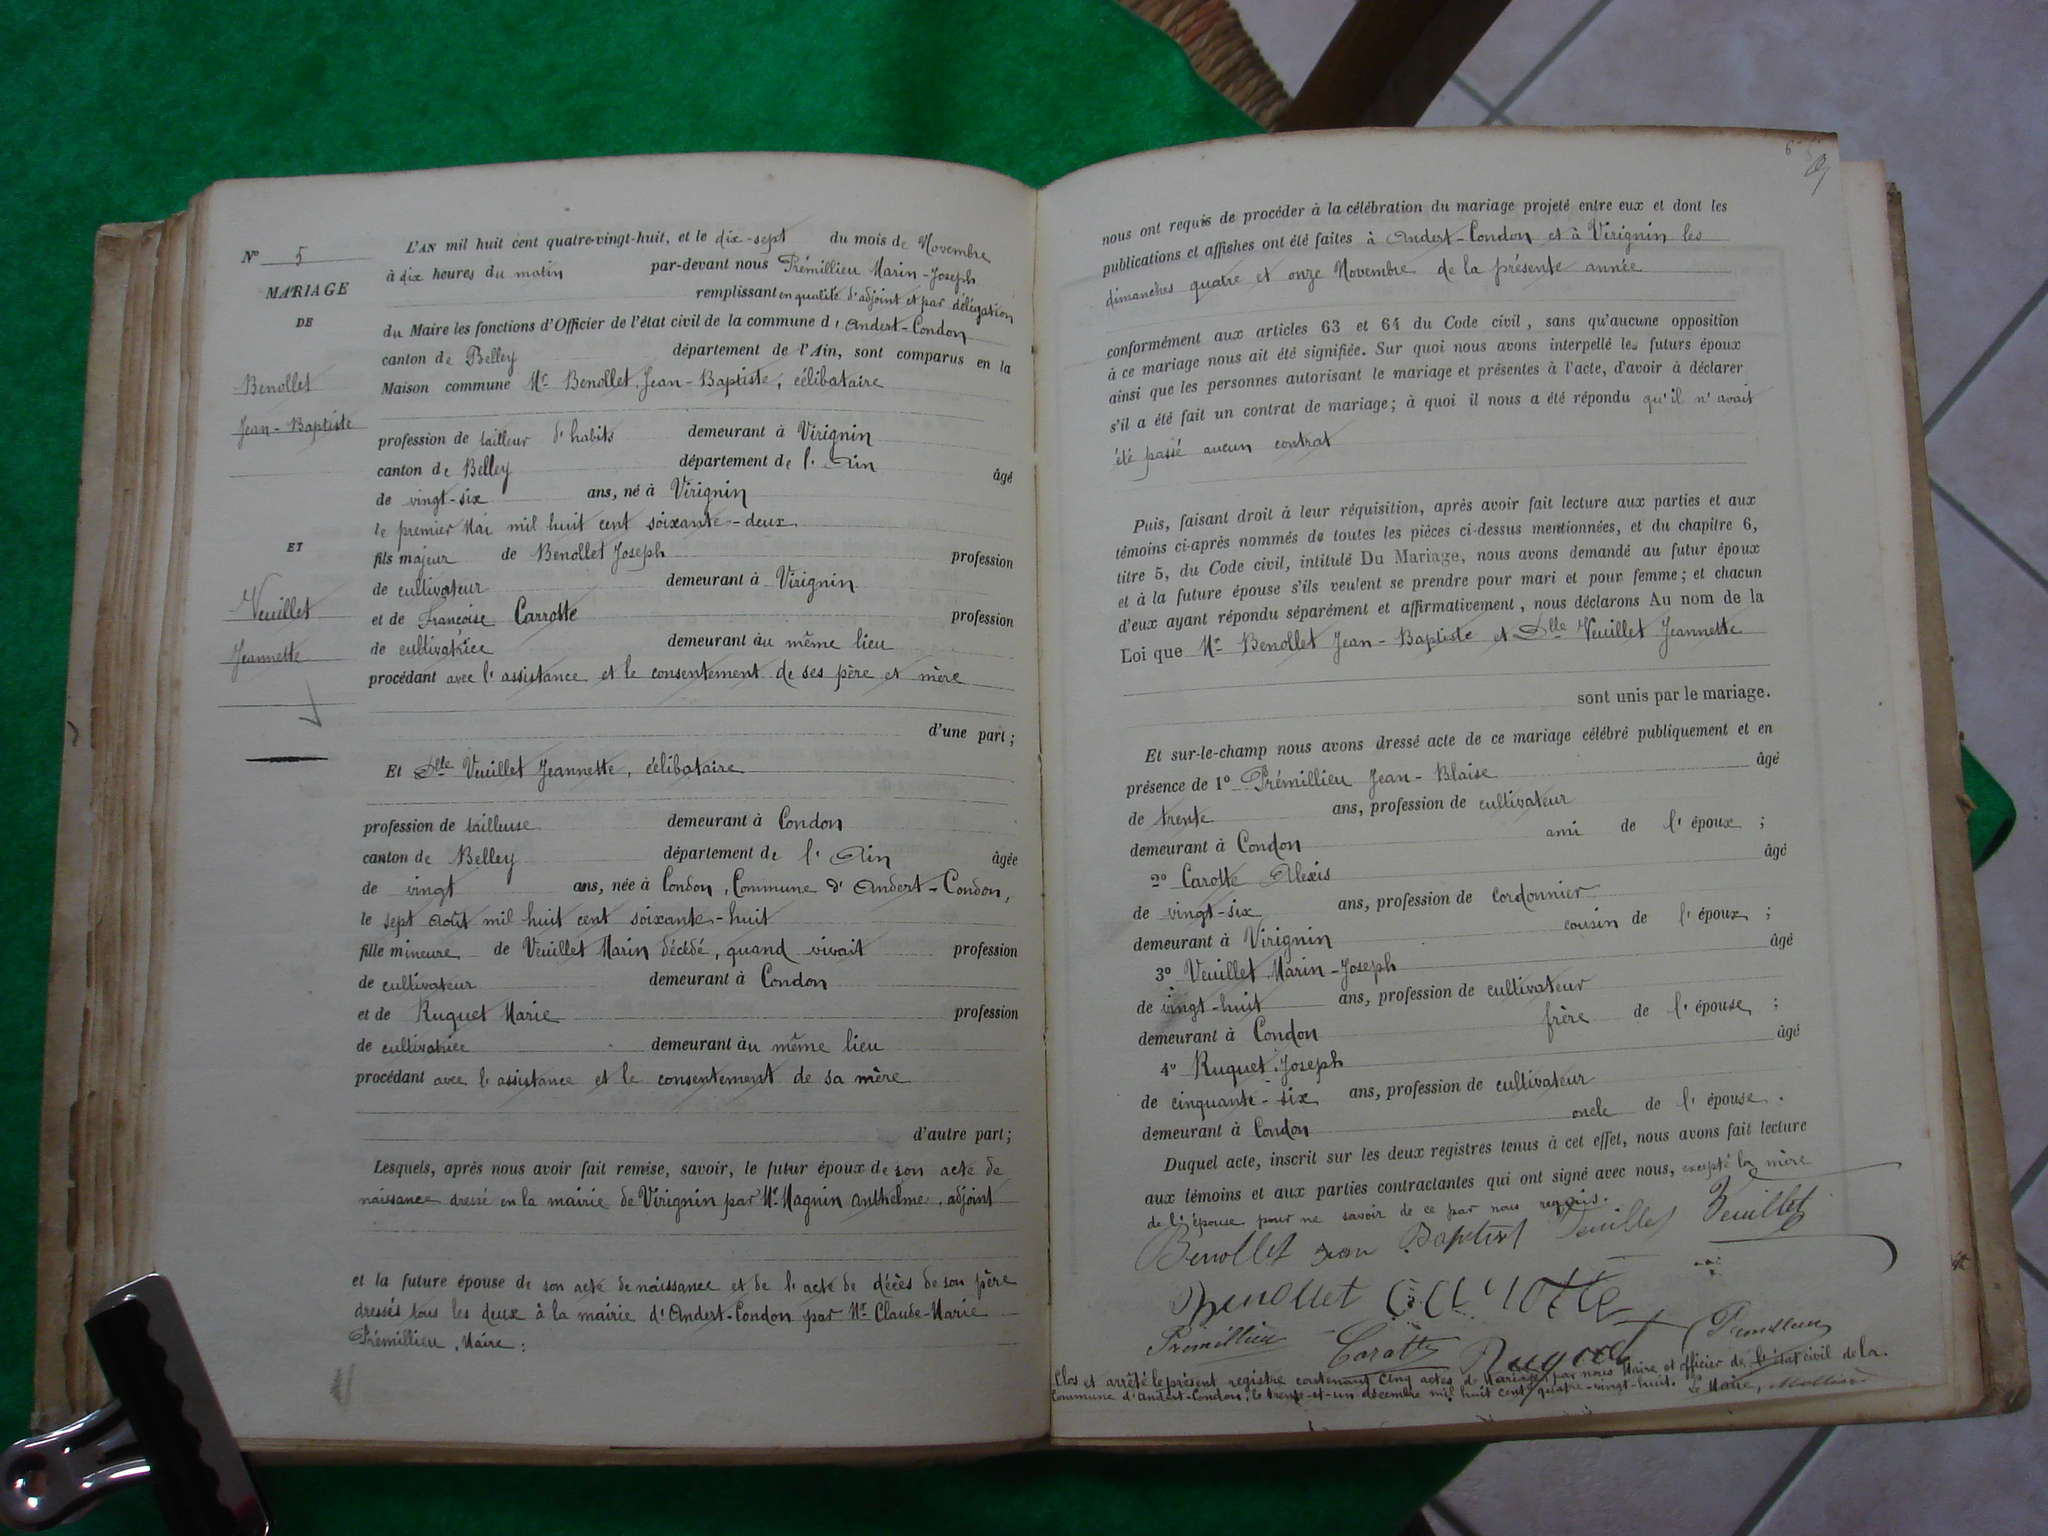 N° 5
MARIAGE
DE
Benollet
Jean-Baptiste
ET
Veuillet
Jeannette
L'AN mil huit cent quatre-vingt-huit, et le dix-sept du mois de Novembre
à dix heures du matin par-devant nous Prémillieu Marin-Joseph
remplissant en qualité d'adjoint et par délégation
du Maire les fonctions d'Officier de l'état civil de la commune d'Andert-Condon
canton de Belley département de l'Ain, sont comparus en la
Maison commune Mr Benollet Jean-Baptiste, célibataire
profession de tailleur d'habits demeurant à Virignin
canton de Belley département de l'Ain âgé
de vingt-six ans, né à Virignin
le premier Mai mil huit cent soixante-deux
fils majeur de Benollet Joseph profession
de cultivateur demeurant à Virignin
et de Françoise Carrotte profession
de cultivatrice demeurant au même lieu
procédant avec l'assistance et le consentement de ses père et mère
d'une part;
Et Dlle Veuillet Jeannette, célibataire
profession de tailleuse demeurant à Condon
canton de Belley département de l'Ain âgée
de vingt ans, née à Condon, Commune d'Andert-Condon,
le sept Août mil huit cent soixante-huit
fille mineure de Veuillet Marin décédé, quand vivait profession
de cultivateur demeurant à Condon
et de Ruquet Marie profession
de cultivatrice demeurant au même lieu
procédant avec l'assistance et le consentement de sa mère
d'autre part;
Lesquels, après nous avoir fait remise, savoir, le futur époux de son acte de
naissance dressé en la mairie de Virignin par Mr Magnin Anthelme, adjoint
et la future épouse de son acte de naissance et de l'acte de décès de son père
dressés tous les deux à la mairie d'Andert-Condon par Mr Claude-Marie
Prémillieu, Maire;
nous ont requis de procéder à la célébration du mariage projeté entre eux et dont les
publications et affiches ont été faites à Andert-Condon et à Virignin les
dimanches quatre et onze Novembre de la présente année
conformément aux articles 63 et 64 du Code civil, sans qu'aucune opposition
à ce mariage nous ait été signifiée. Sur quoi nous avons interpellé les futurs époux
ainsi que les personnes autorisant le mariage et présentes à l'acte, d'avoir à déclarer
s'il a été fait un contrat de mariage; à quoi il nous a été répondu qu'il n'avait
été passé aucun contrat
Puis, faisant droit à leur réquisition, après avoir fait lecture aux parties et aux
témoins ci-après nommés de toutes les pièces ci-dessus mentionnées, et du chapitre 6,
titre 5, du Code civil, intitulé Du Mariage, nous avons demandé au futur époux
et à la future épouse s'ils veulent se prendre pour mari et pour femme; et chacun
d'eux ayant répondu séparément et affirmativement, nous déclarons Au nom de la
Loi que Mr Benollet Jean-Baptiste et Dlle Veuillet Jeannette
sont unis par le mariage.
Et sur-le-champ nous avons dressé acte de ce mariage célébré publiquement et en
présence de 1° Prémillieu Jean-Blaise âgé
de trente ans, profession de cultivateur
demeurant à Condon ami de l'époux;
2° Carotte Alexis âgé
de vingt-six ans, profession de cordonnier
demeurant à Virignin cousin de l'époux;
3° Veuillet Marin-Joseph âgé
de vingt-huit ans, profession de cultivateur
demeurant à Condon frère de l'épouse;
4° Ruquet Joseph âgé
de cinquante-six ans, profession de cultivateur
demeurant à Condon oncle de l'épouse.
Duquel acte, inscrit sur les deux registres tenus à cet effet, nous avons fait lecture
aux témoins et aux parties contractantes qui ont signé avec nous, excepté la mère
de l'épouse pour ne savoir de ce par nous requis.
Benollet Jean Baptist Veuillet Veuillet
Benollet Carotte
Premillieu Carotte Ruquet Premillieu
Clos et arrêté le présent registre contenant cinq actes de Mariage, par nous Maire et officier de l'état civil de la
Commune d'Andert-Condon, le trente-et-un décembre mil huit cent quatre-vingt-huit. Le Maire,